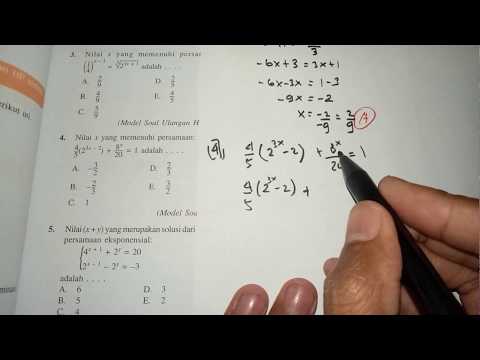 3. Nilai x yang memenuhi persar
(1/4)^(x-1) = ∛2^(3x+1) adalah . . . .
A. 2/9 D. 2/5
B. 4/9 E. 4/5
C. 3/5
(Model Soal Ulangan H
4. Nilai x yang memenuhi persamaan:
4/5(2^(3x-2)) + 8^x/20 = 1 adalah . . . .
A. -3/2 D. 2/3
B. -2/3 E. 3/2
C. 1
(Model Soa
5. Nilai (x + y) yang merupakan solusi dari
persamaan eksponensial:
4^(x+1) + 2^y = 20
2^(x-1) - 2^y = -3
adalah . . . .
A. 6 D. 3
B. 5 E. 2
C. 4
3
-6x+3 = 3x+1
-6x-3x = 1-3
-9x = -2
x = -2/-9 = 2/9 A
(4) 4/5 (2^3x - 2) + 8^x/20 = 1
4/5 (2^3x - 2) +
rikut ini.